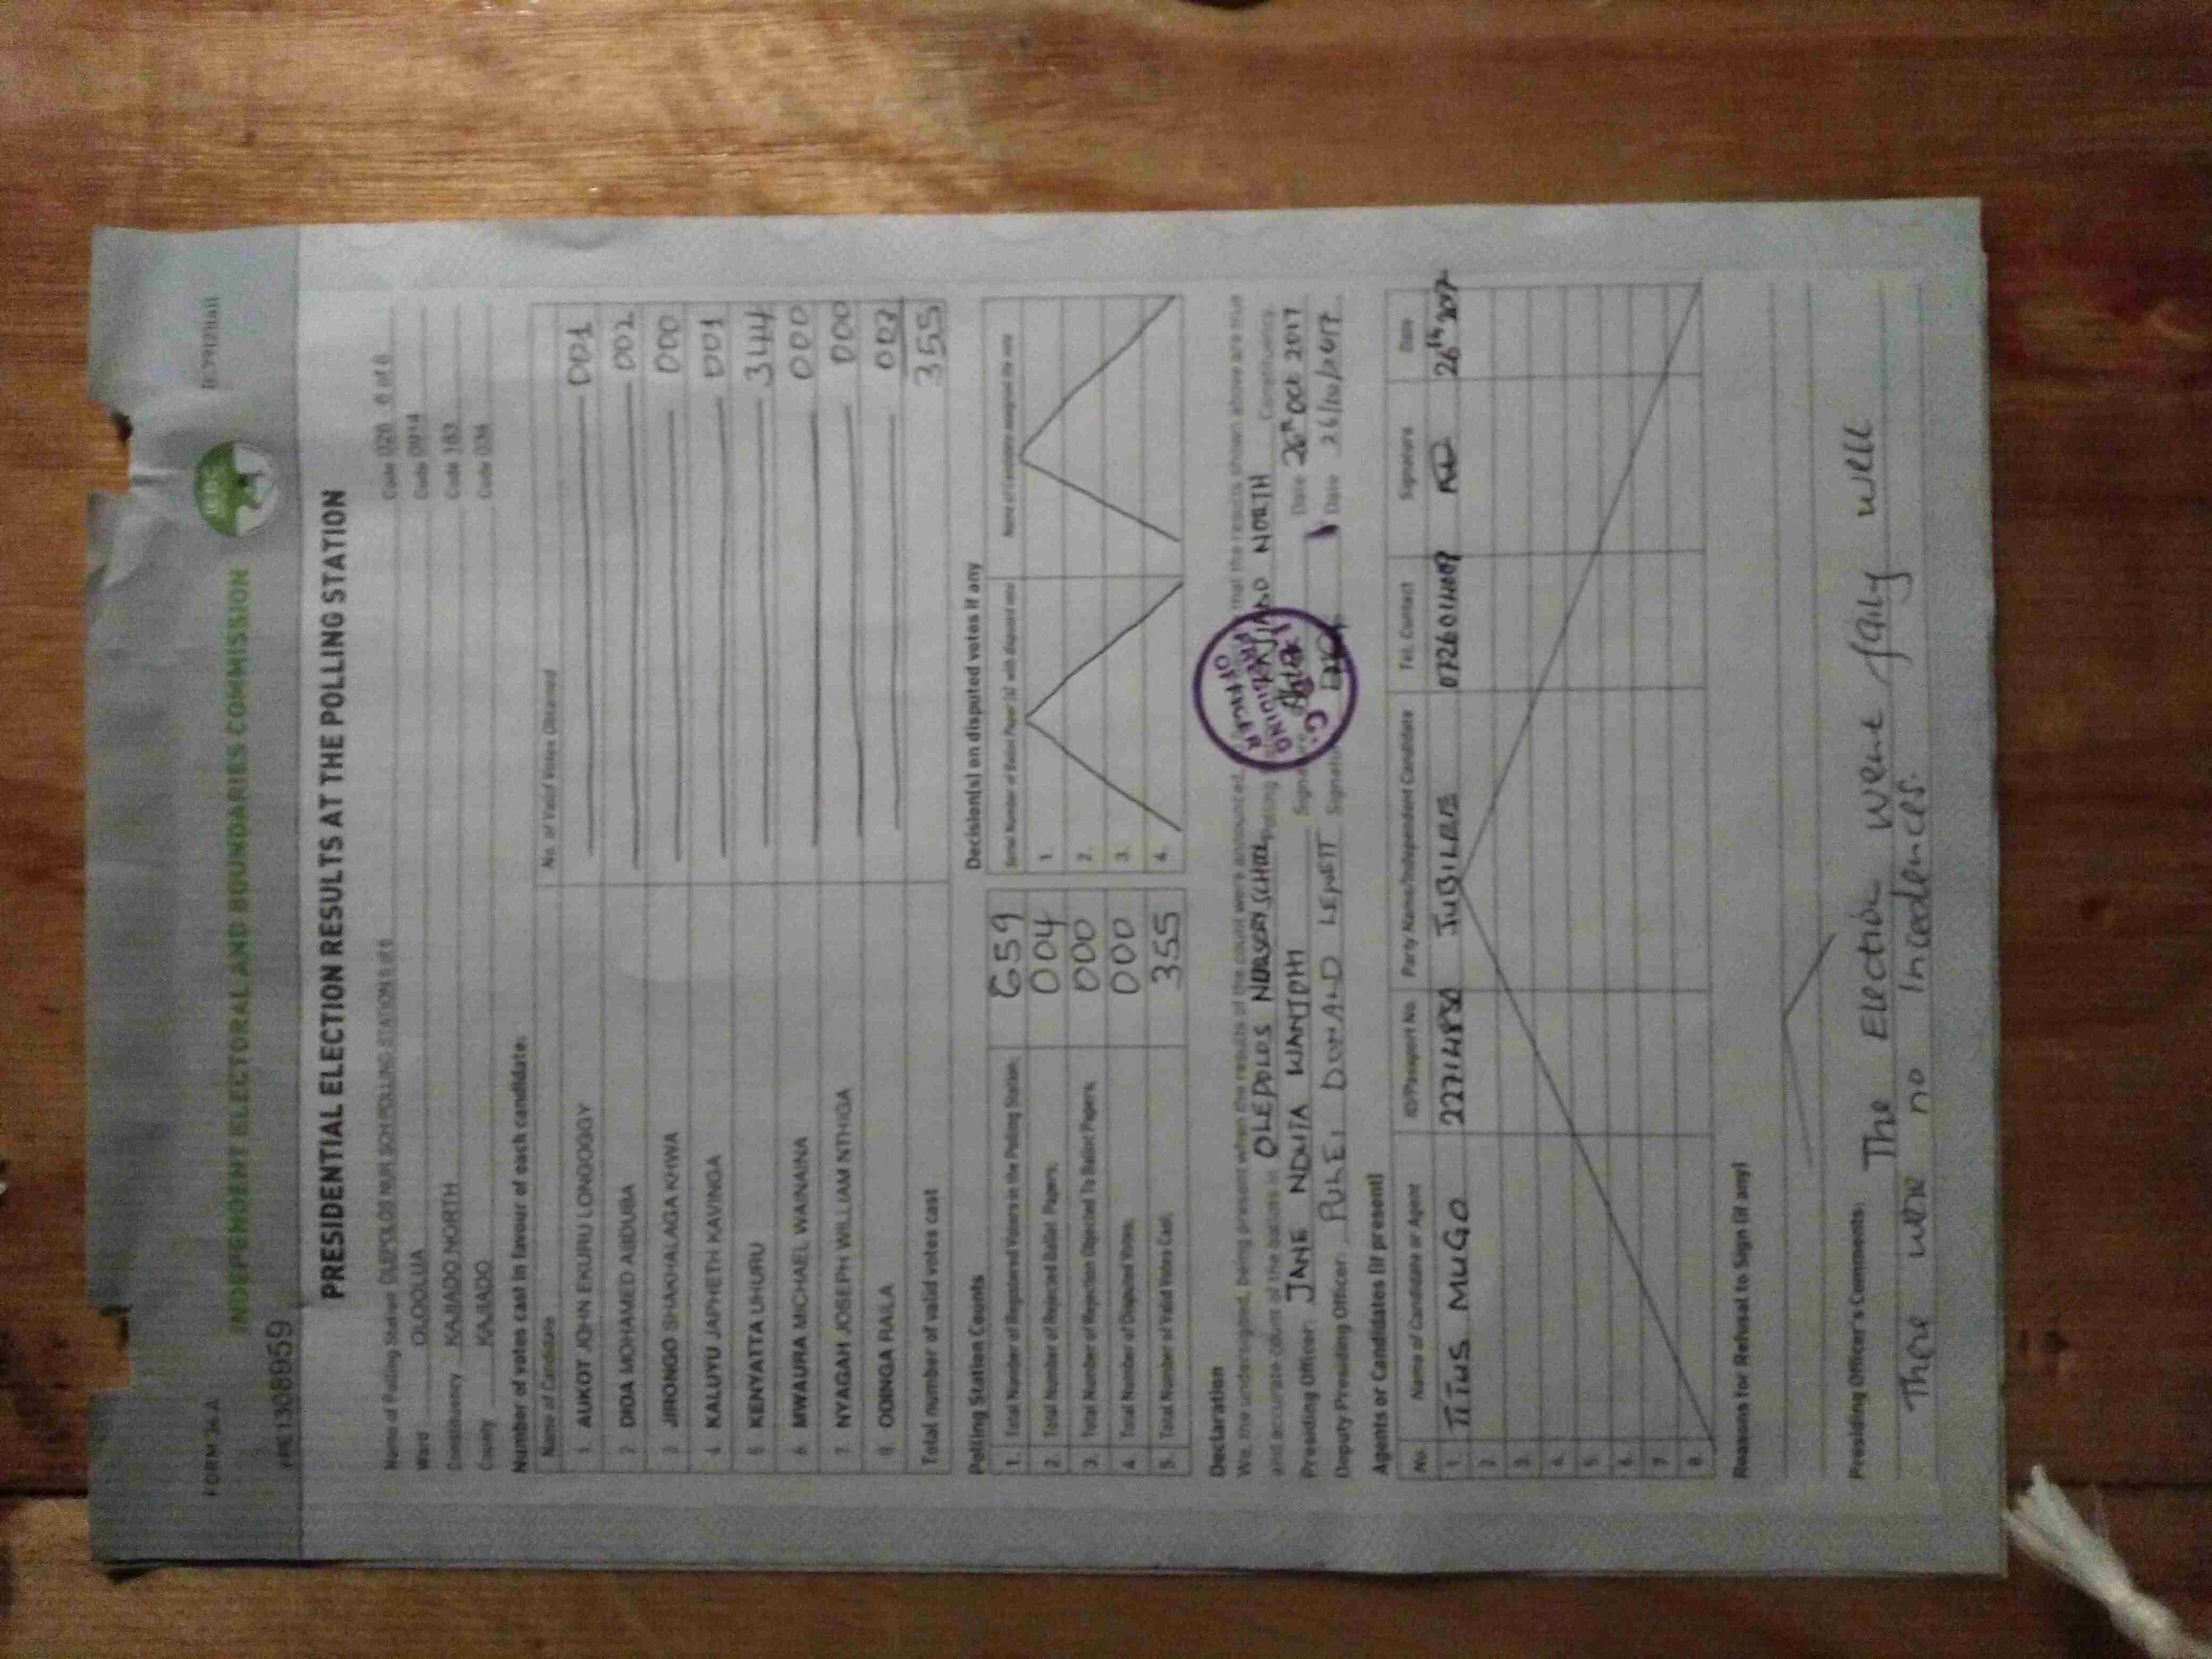 FORM 34A
INDEPENDENT ELECTORAL AND BOUNDARIES COMMISSION
IEBC
PRESIDENTIAL ELECTION RESULTS AT THE POLLING STATION
Name of Polling Station OLEPOLOS NUR SCH POLLING STATION 6 of 6 Code 028 6 of 6
Ward OLOOLUA Code 0914
Constituency KAJIADO NORTH Code 183
County KAJIADO Code 034
Number of votes cast in favour of each candidate:
Name of Candidate No. of Valid Votes Obtained
1 AUKOT JOHN EKURU LONGOGGY 001
2 DIDA MOHAMED ABDUBA 002
3 JIRONGO SHAKHALAGA KHWA 000
4 KALUYU JAPHETH KAVINGA 001
5 KENYATTA UHURU 344
6 MWAURA MICHAEL WAINAINA 000
7. NYAGAH JOSEPH WILLIAM NTHIGA 000
8 ODINGA RAILA 007
Total number of valid votes cast 355
Polling Station Counts
1. Total Number of Registered Voters in the Polling Station. 659
2. Total Number of Rejected Ballot Papers. 004
3. Total Number of Rejection Objected To Ballot Papers. 000
4. Total Number of Disputed Votes. 000
5. Total Number of Valid Votes Cast. 355
Decision(s) on disputed votes if any
Serial Number of Ballot Paper (s) with disputed vote
1.
2.
3.
4.
Declaration
We, the undersigned, being present when the results of the count were announced, that the results shown above are true
and accurate count of the ballots in OLEPOLOS NURSERY SCHOOL Polling KAJIADO NORTH Constituency.
Presiding Officer: JANE NDUTA WANJOHI Date 26th Oct 2017
Deputy Presiding Officer: DONALD Date 26/10/2017
Agents or Candidates (if present)
No. Name of Candidate or Agent ID/Passport No. Party Name/Independent Candidate Tel. Contact Signature Date
1. TITUS MUGO JUBILEE 26th 2017
2.
3.
4.
5.
6.
7.
8.
Reasons for Refusal to Sign (if any)
Presiding Officer's Comments: The Election went faily well
There were no Incedences.